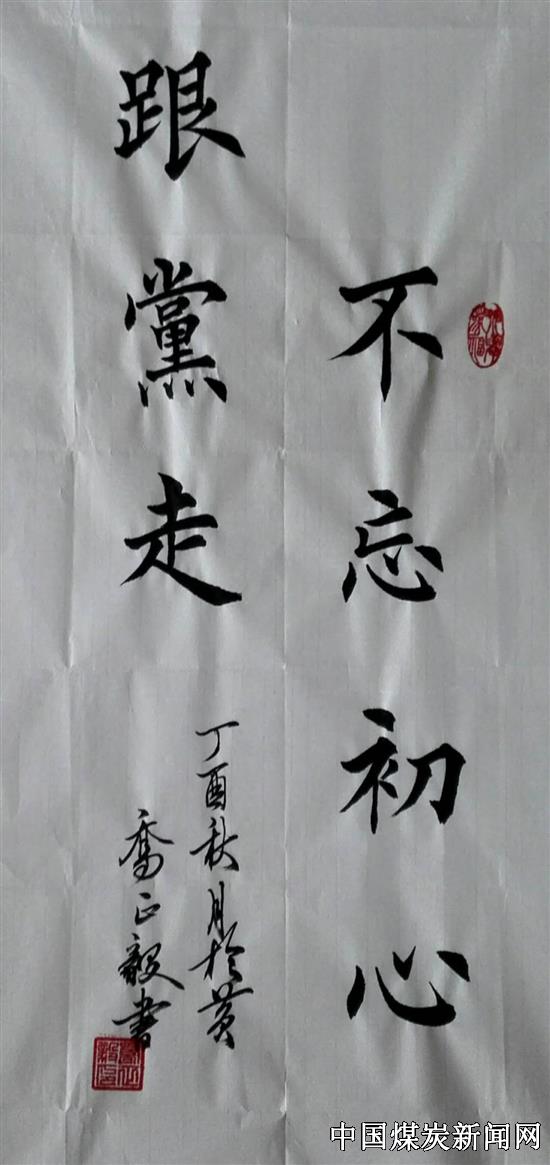 不忘初心
跟黨走
丁酉秋月於黄
喬正毅書
中国煤炭新闻网